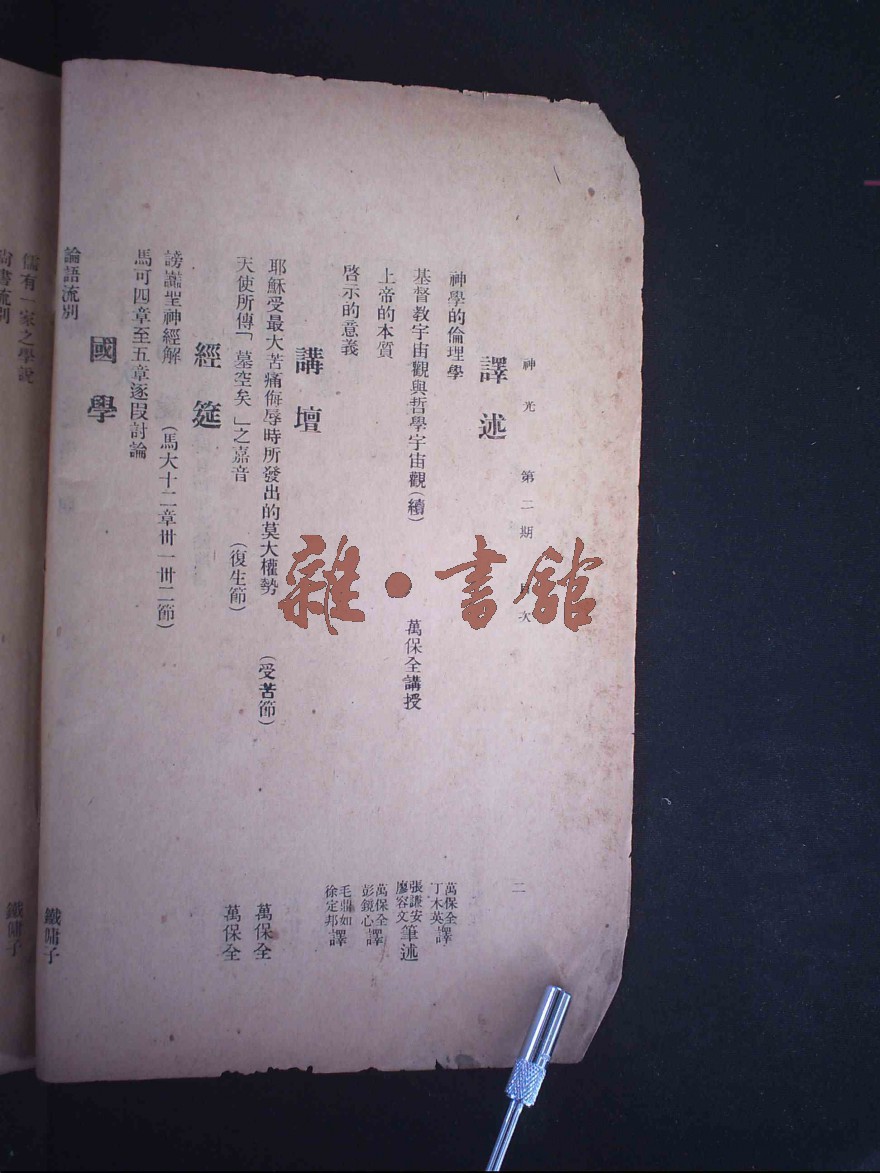 神光 第二期 目次 二
譯述
神學的倫理學 萬保全 丁木英 譯
基督教宇宙觀與哲學宇宙觀(續) 萬保全講授 張謙安 廖容文 筆述
上帝的本質 萬保全 彭鏡心 譯
啓示的意義 毛鼎如 徐定邦 譯
講壇
耶穌受最大苦痛侮辱時所發出的莫大權勢 (受苦節) 萬保全
天使所傳「墓空矣」之嘉音 (復生節) 萬保全
經筵
謗讟聖神經解 (馬大十二章卅一卅二節)
馬可四章至五章逐段討論
國學
論語流別 鐵慵子
儒有一家之學說 鐵慵子
尚書流別
雜·書館